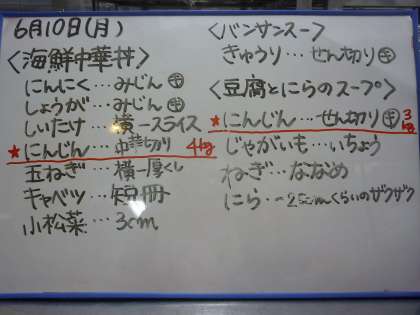 6月10日(月)
〈海鮮中華丼〉
にんにく…みじん㋖
しょうが…みじん㋖
しいたけ…横一スライス
★にんじん…中華切り 4kg
玉ねぎ…横一厚くし
キャベツ…短冊
小松菜…3cm
〈バンサンスー〉
きゅうり…せん切り㋖
〈豆腐とにらのスープ〉
★にんじん…せん切り㋖ 3kg
じゃがいも…いちょう
ねぎ…ななめ
にら…2.5cmくらいのザクザク